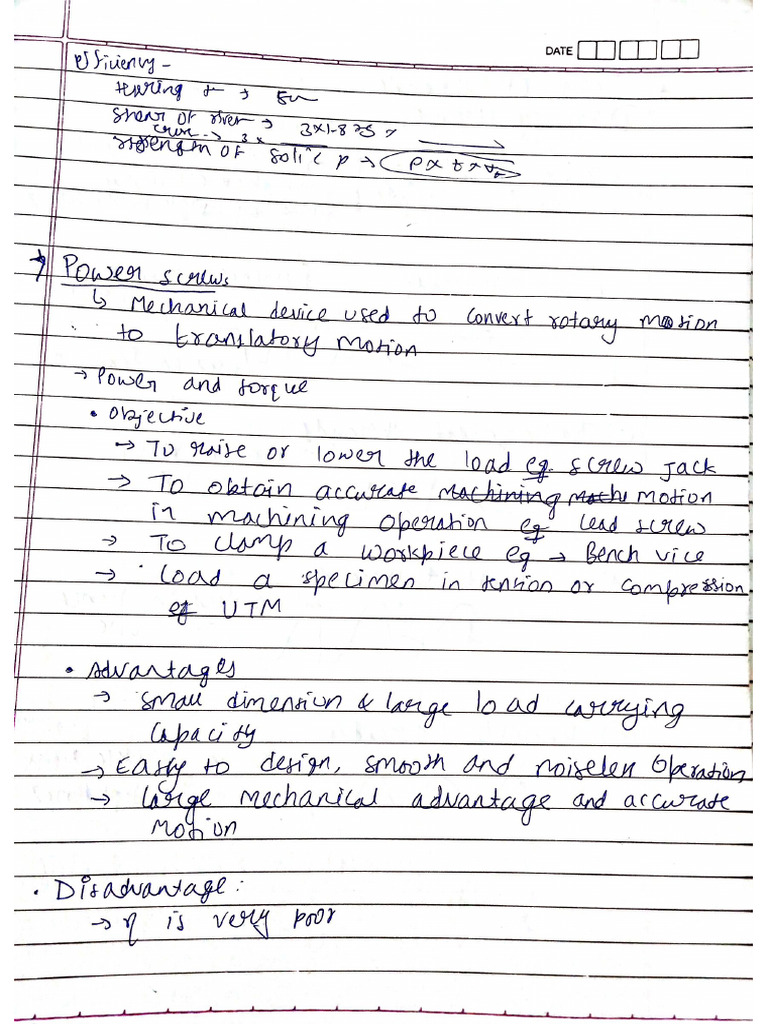 DATE
Efficiency -
tearing →
shear of rivet → 3×1.875 ×
crus → 3 ×
strength of solid p → p × t ×
→ Power screws
↳ Mechanical device used to convert rotary motion
to translatory motion
→ Power and torque
• Objective
→ To raise or lower the load eg. screw jack
→ To obtain accurate machining motion
in machining operation eg lead screw
→ To clamp a workpiece eg → Bench vice
→ Load a specimen in tension or compression
eg UTM
• Advantages
→ small dimension & large load carrying
capacity
→ Easy to design, smooth and noiseless operation
→ large mechanical advantage and accurate
motion
• Disadvantage:
→ η is very poor